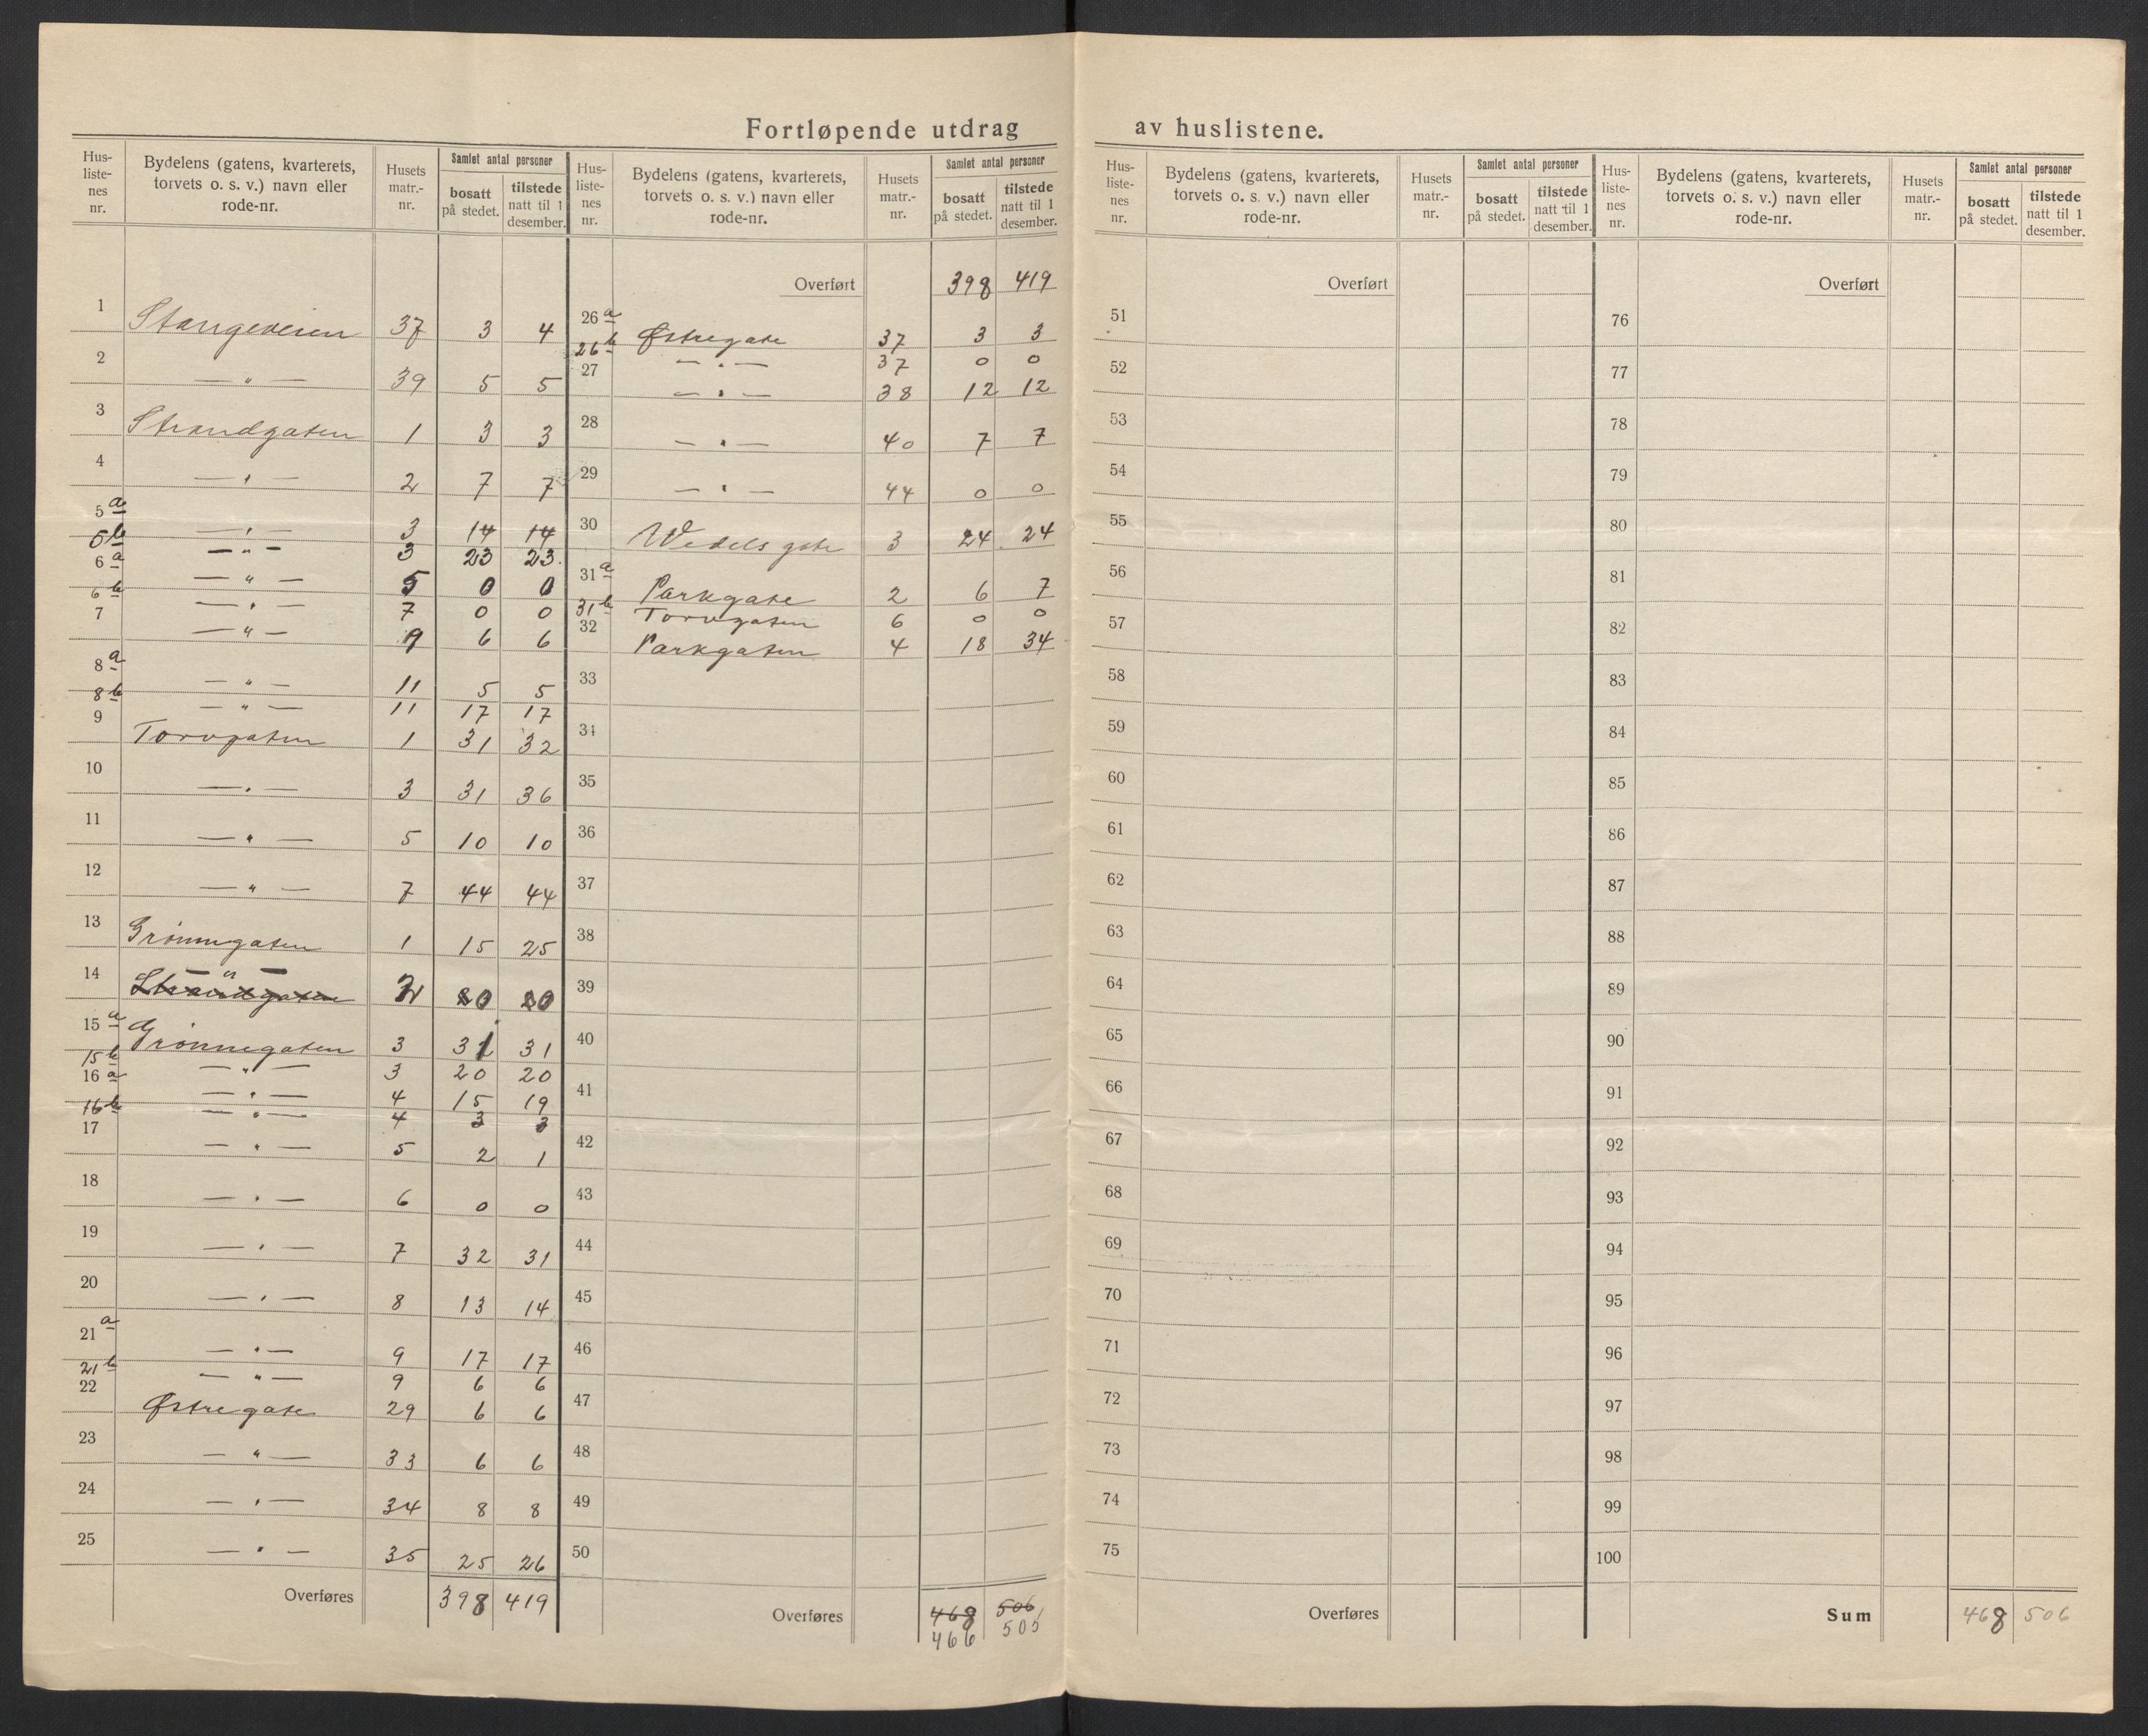 Fortløpende utdrag av huslistene.
Hus-listenes nr. | Bydelens (gatens, kvarterets, torvets o. s. v.) navn eller rode-nr. | Husets matr.-nr. | Samlet antal personer | bosatt på stedet. | tilstede natt til 1 desember.
1 Stangeveien 37 3 4
2 — " — 39 5 5
3 Strandgaten 1 3 3
4 — " — 2 7 7
5 a — " — 3 14 14
5 b — " — 3 23 23
6 a — " — 5 0 0
6 b — " — 7 0 0
7 — " — 9 6 6
8 a — " — 11 5 5
8 b — " — 11 17 17
9 Torvgaten 1 31 32
10 — " — 3 31 36
11 — " — 5 10 10
12 — " — 7 44 44
13 Grönnegaten 1 15 25
14 — " —
Strandgaten 2
15 a Grönnegaten 3 31 31
15 b — " — 3 20 20
16 a — " — 4 15 19
16 b — " — 4 3 3
17 — " — 5 2 1
18 — " — 6 0 0
19 — " — 7 32 31
20 — " — 8 13 14
21 a — " — 9 17 17
21 b — " — 9 6 6
22 Østregate 29 6 6
23 — " — 33 6 6
24 — " — 34 8 8
25 — " — 35 25 26
Overføres 398 419
Hus-listenes nr. | Bydelens (gatens, kvarterets, torvets o. s. v.) navn eller rode-nr. | Husets matr.-nr. | Samlet antal personer | bosatt på stedet. | tilstede natt til 1 desember.
Overført 398 419
26 a Østregate 37 3 3
26 b — " — 37 0 0
27 — " — 38 12 12
28 — " — 40 7 7
29 — " — 44 0 0
30 Wedels gate 3 24 24
31 a Parkgate 2 6 7
31 b Torvgaten 6 0 0
32 Parkgaten 4 18 34
33
34
35
36
37
38
39
40
41
42
43
44
45
46
47
48
49
50
Overføres 468 506
466 505
Hus-listenes nr. | Bydelens (gatens, kvarterets, torvets o. s. v.) navn eller rode-nr. | Husets matr.-nr. | Samlet antal personer | bosatt på stedet. | tilstede natt til 1 desember.
Overført
51
52
53
54
55
56
57
58
59
60
61
62
63
64
65
66
67
68
69
70
71
72
73
74
75
Overføres
Hus-listenes nr. | Bydelens (gatens, kvarterets, torvets o. s. v.) navn eller rode-nr. | Husets matr.-nr. | Samlet antal personer | bosatt på stedet. | tilstede natt til 1 desember.
Overført
76
77
78
79
80
81
82
83
84
85
86
87
88
89
90
91
92
93
94
95
96
97
98
99
100
Sum 468 506